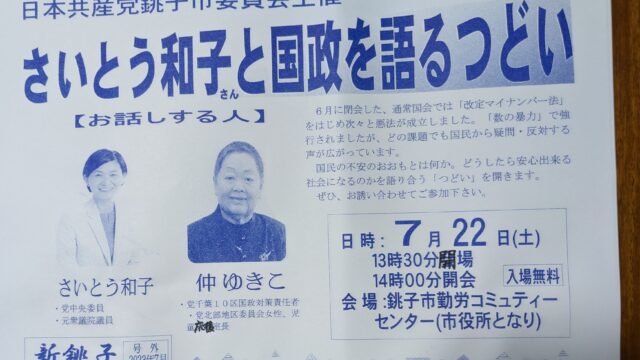 日本共産党銚子市委員会主催
さいとう和子さんと国政を語るつどい
【お話しする人】
6月に閉会した、通常国会では「改定マイナンバー法」
をはじめ次々と悪法が成立しました。「数の暴力」で強
行されましたが、どの課題でも国民から疑問・反対する
声が広がっています。
国民の不安のおおもとは何か。どうしたら安心出来る
社会になるのかを語り合う「つどい」を開きます。
ぜひ、お誘い合わせてご参加下さい。
さいとう和子
・党中央委員
・元衆議院議員
仲ゆきこ
・党千葉10区国政対策責任者
・党北部地区委員会女性、児
童 班長
日時:7月22日(土)
13時30分開場
14時00分開会
入場無料
会場:銚子市勤労コミュティー
センター(市役所となり)
新銚子
号外
2023年7月